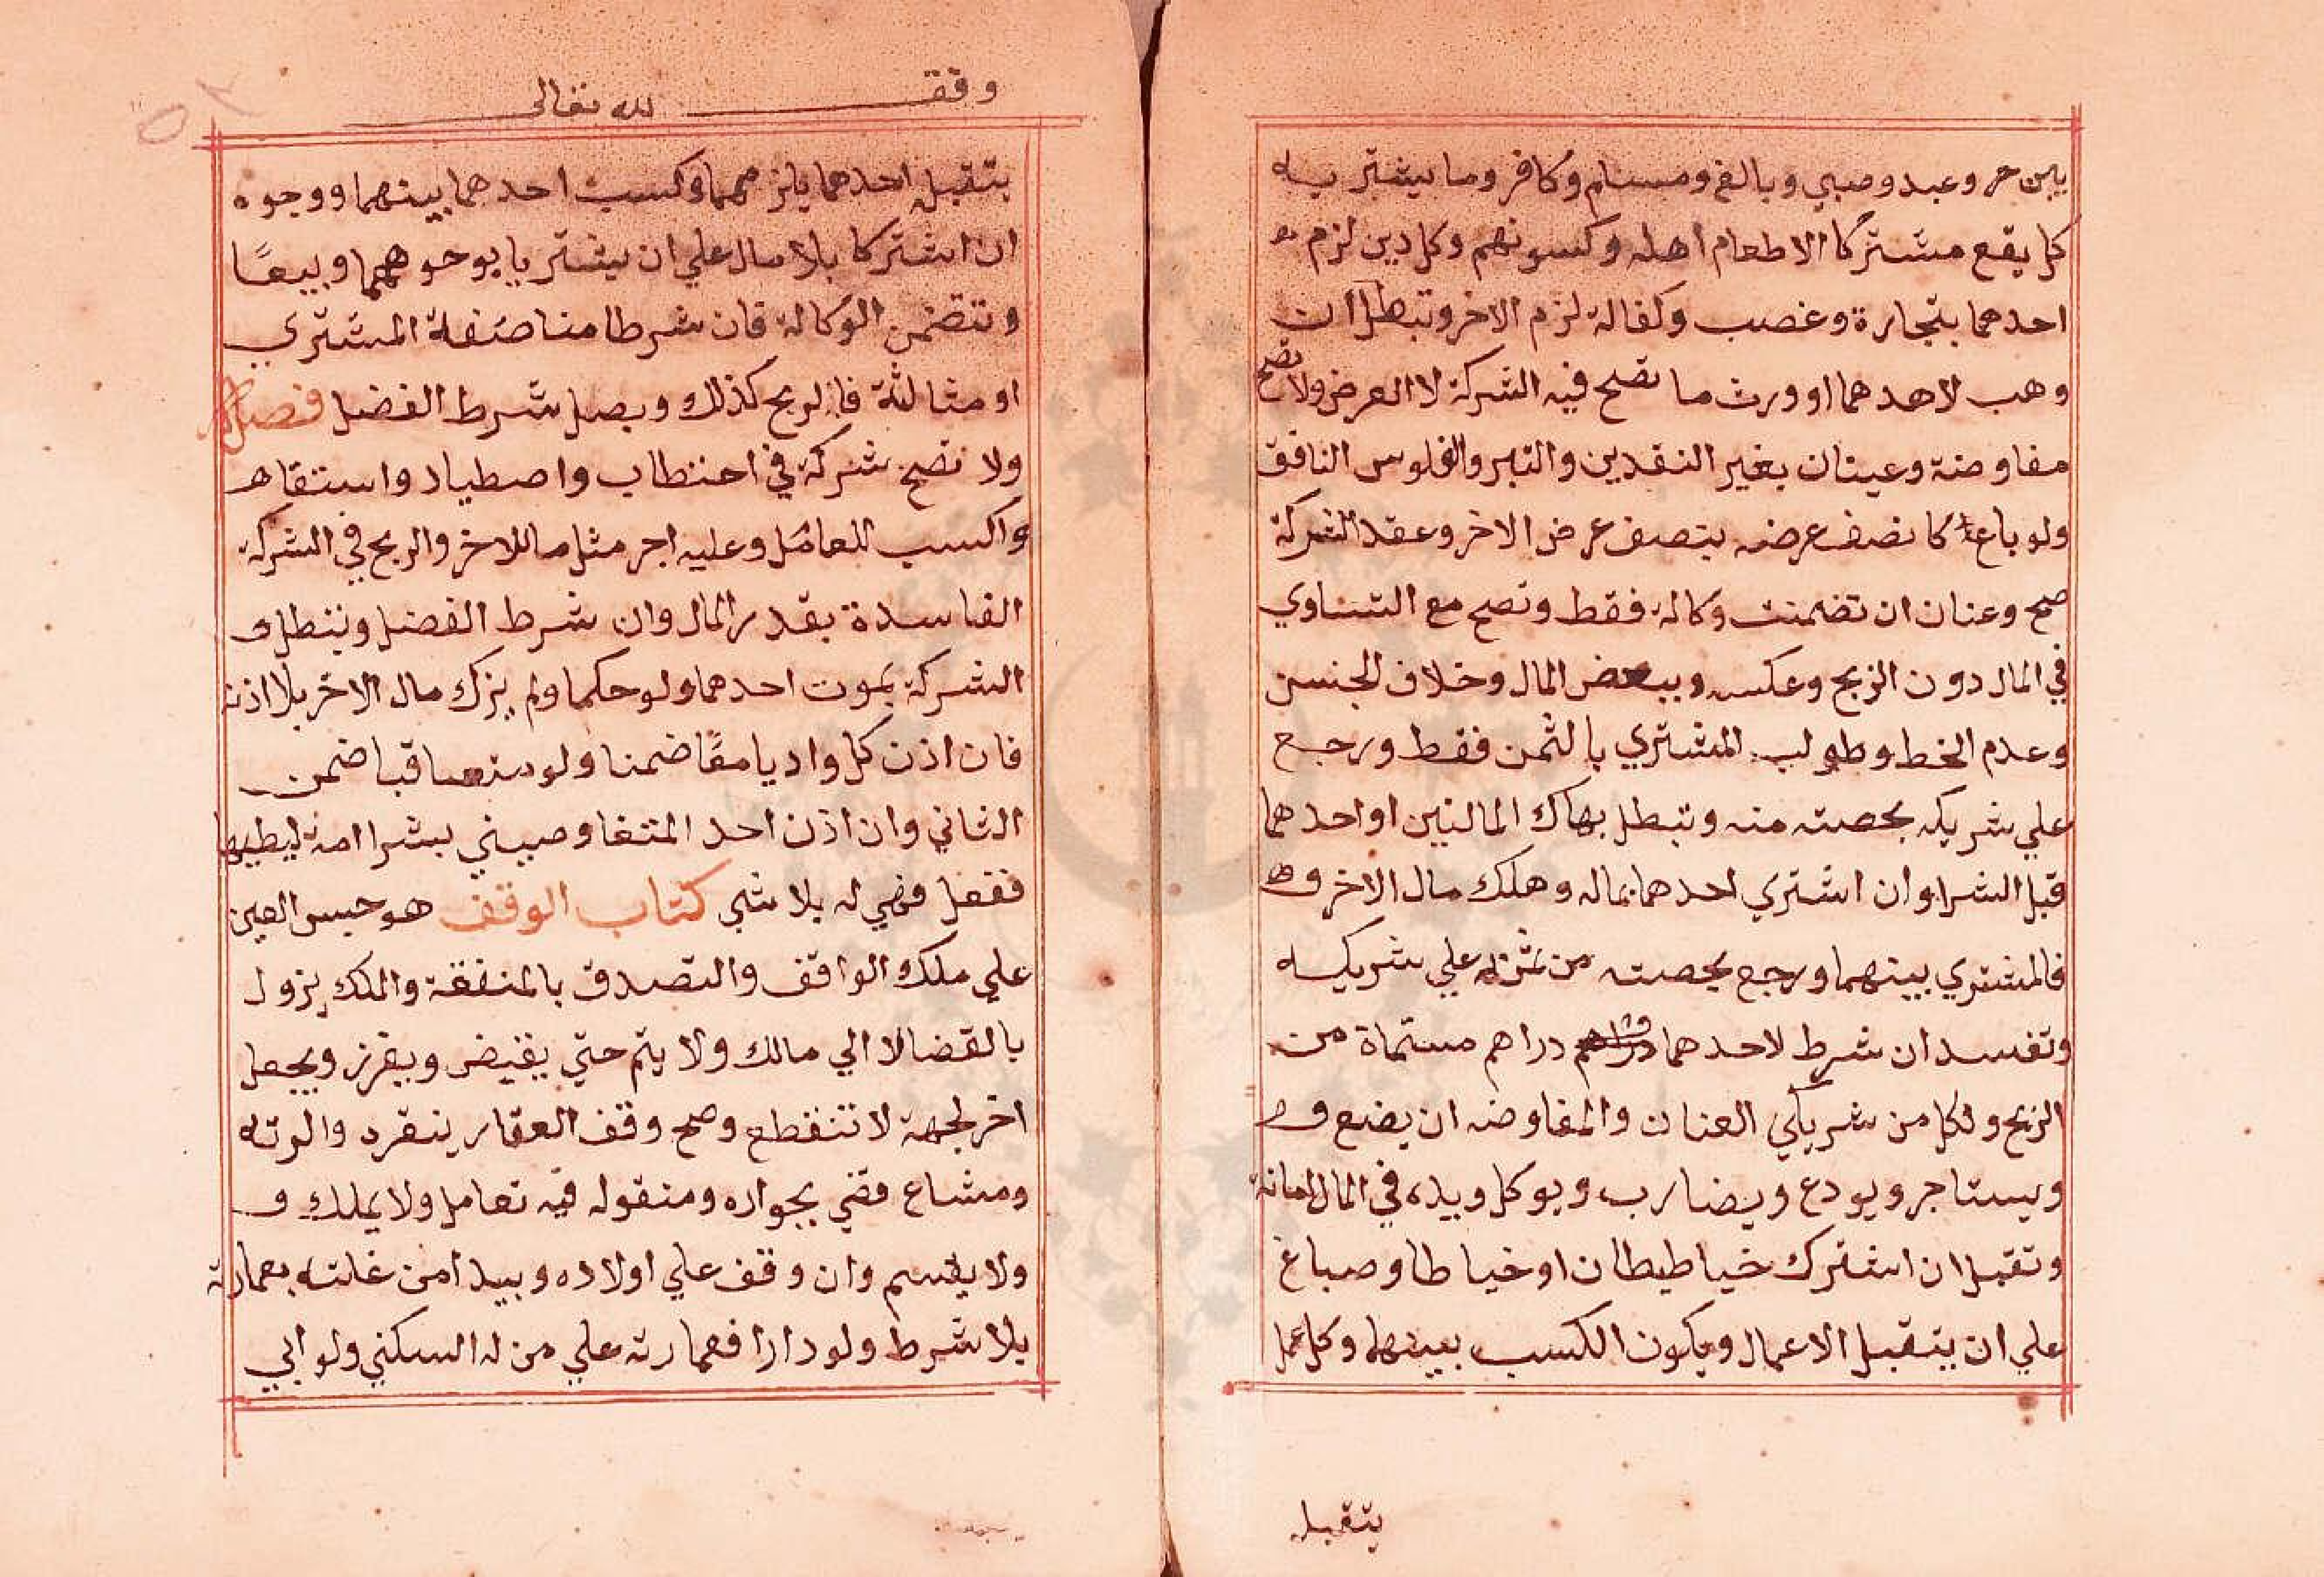 بين حر وعبد وصبي وبالغ ومسلم وكافر وما يشتريه
كل يقع مشتركا الا طعام اهله وكسوتهم وكل دين لزم
احدهما بتجارة وغصب وكفالة لزم الاخر وتبطل ان
وهب لاحدهما او ورث ما تصح فيه الشركة لا العرض ولا تصح
مفاوضة وعينان بغير النقدين والتبر والفلوس النافق
ولو باع كل نصف عرضه بنصف عرض الاخر وعقد الشركة
صح وعنان ان تضمنت وكالة فقط وتصح مع التساوي
في المال دون الربح وعكسه وببعض المال وخلاف الجنس
وعدم الخط وطولب المشتري بالثمن فقط ورجع
علي شريكه بحصته منه وتبطل بهلاك المالين او احدهما
قبل الشرا وان اشتري احدهما بماله وهلك مال الاخر
فالمشتري بينهما ورجع بحصته من ثمنه علي شريكه
وتفسد ان شرط لاحدهما دراهم مستماة من
الربح ولكل من شريكي العنان والمفاوضه ان يضع
ويستاجر ويودع ويضارب ويوكل ويده في المال امانة
وتقبل ان اشترك خياطيطان او خياطا وصباغ
علي ان يتقبل الاعمال ويكون الكسب بينهما وكل عمل
يتقبل
وقف لله تعالى
يتقبل احدهما يلزمهما وكسب احدهما بينهما ووجوه
ان اشتركا بلا مال علي ان يشتريا بوجوههما وبيعا
وتتضمن الوكالة فان شرطا مناصفة المشتري
او مثالثة فالربح كذلك وبطل شرط الفضل فصل
ولا تصح شركة في احتطاب واصطياد واستقاء
واكسب للعامل وعليه اجر مثل ما للاخر والربح في الشركة
الفاسدة بقدر المال وان شرط الفضل وتبطل
الشركة بموت احدهما ولو حكما ولم يزك مال الاخر بلا اذن
فان اذن كل واديا معًا ضمنا ولو متعاقبا ضمن
الثاني وان اذن احد المتفاوضيني بشرا امة ليطيها
ففعل فهي له بلا شي كتاب الوقف هو حبس العين
علي ملك الواقف والتصدق بالمنفقة والملك يزول
بالقضا لا الي مالك ولا يتم حتي يقبض ويفرز ويجعل
اخر لجهة لا تنقطع وصح وقف العقار ينقرد والرته
ومشاع قضي بجوازه ومنقول فيه تعامل ولا يملك
ولا يقسم وان وقف علي اولاده ويبدا من غلته بعمارته
بلا شرط ولو دارا فعمارته علي من له السكني ولو ابي